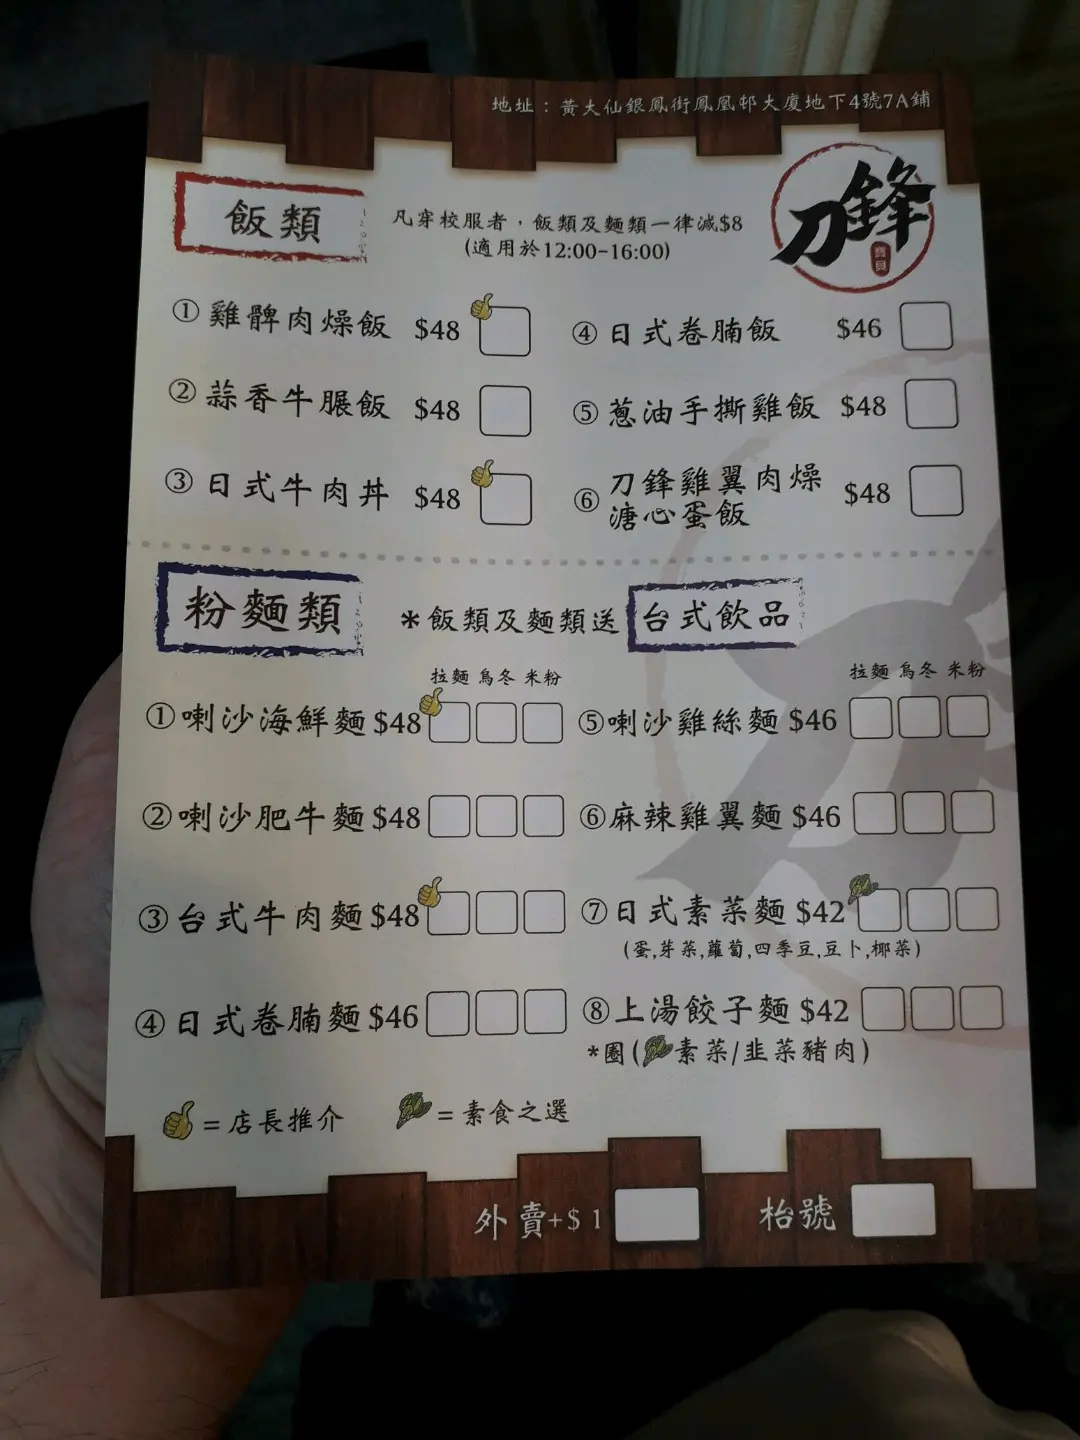 地址：黃大仙銀鳳街鳳凰邨大廈地下4號7A鋪
飯類
凡穿校服者，飯類及麵類一律減$8
(適用於12:00-16:00)
刀鋒
寶貝
① 雞髀肉燥飯 $48
② 蒜香牛脤飯 $48
③ 日式牛肉丼 $48
④ 日式卷腩飯 $46
⑤ 蔥油手撕雞飯 $48
⑥ 刀鋒雞翼肉燥
溏心蛋飯 $48
粉麵類
*飯類及麵類送 台式飲品
拉麵 烏冬 米粉
① 喇沙海鮮麵 $48
② 喇沙肥牛麵 $48
③ 台式牛肉麵 $48
④ 日式卷腩麵 $46
拉麵 烏冬 米粉
⑤ 喇沙雞絲麵 $46
⑥ 麻辣雞翼麵 $46
⑦ 日式素菜麵 $42
(蛋,芽菜,蘿蔔,四季豆,豆卜,椰菜)
⑧ 上湯餃子麵 $42
*圈(素菜/韭菜豬肉)
=店長推介
=素食之選
外賣+$1
枱號